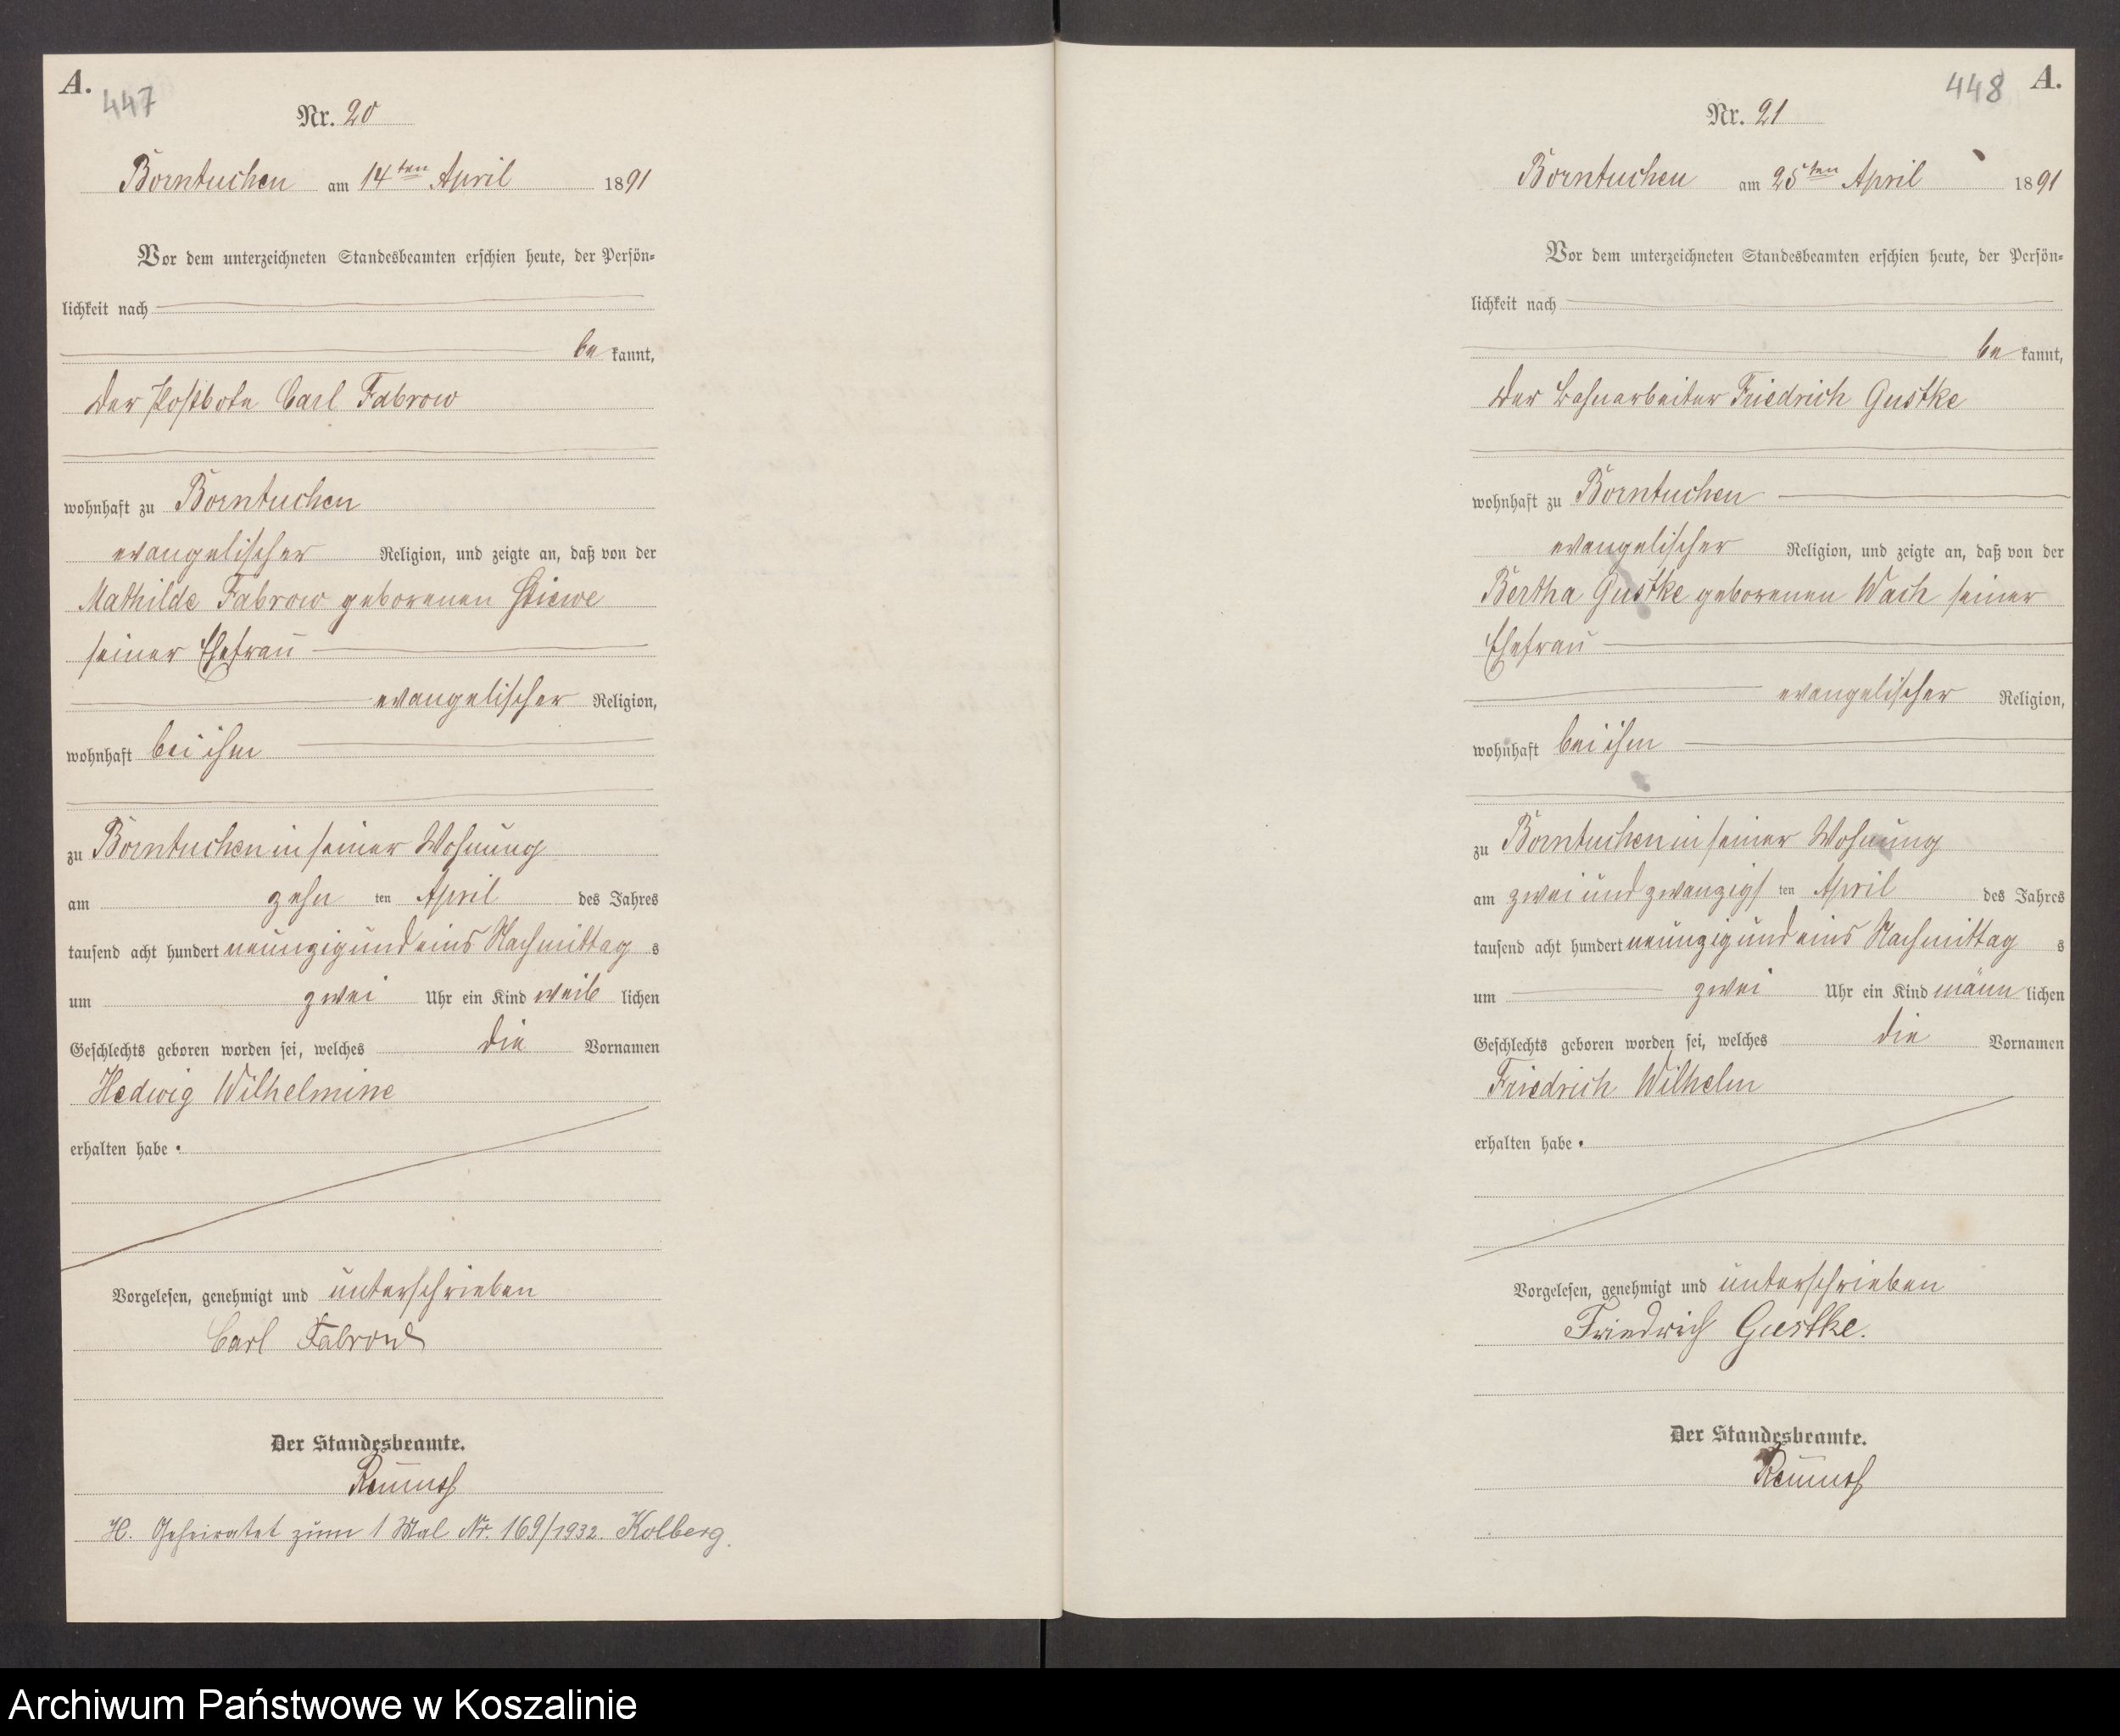 A.
447
Nr. 20
Borntuchen am 14ten April 1891
Vor dem unterzeichneten Standesbeamten erschien heute, der Persön-
lichkeit nach
be kannt,
der Postbote Carl Fabrow
wohnhaft zu Borntuchen
evangelischer Religion, und zeigte an, daß von der
Mathilde Fabrow geborenen Stiewe
seiner Ehefrau
evangelischer Religion,
wohnhaft bei ihm
zu Borntuchen in seiner Wohnung
am zehn ten April des Jahres
tausend acht hundert neunzig und eins Nachmittag s
um zwei Uhr ein Kind weib lichen
Geschlechts geboren worden sei, welches die Vornamen
Hedwig Wilhelmine
erhalten habe.
Vorgelesen, genehmigt und unterschrieben
Carl Fabrow
Der Standesbeamte.
H. Geheiratet zum 1 Mal Nr. 169/1932. Kolberg.
448
A.
Nr. 21
Borntuchen am 25ten April 1891
Vor dem unterzeichneten Standesbeamten erschien heute, der Persön-
lichkeit nach
be kannt,
der Bahnarbeiter Friedrich Gustke
wohnhaft zu Borntuchen
evangelischer Religion, und zeigte an, daß von der
Bertha Gustke geborenen Wach seiner
Ehefrau
evangelischer Religion,
wohnhaft bei ihm
zu Borntuchen in seiner Wohnung
am zwei und zwanzigs ten April des Jahres
tausend acht hundert neunzig und eins Nachmittag s
um zwei Uhr ein Kind männ lichen
Geschlechts geboren worden sei, welches die Vornamen
Friedrich Wilhelm
erhalten habe.
Vorgelesen, genehmigt und unterschrieben
Friedrich Gustke.
Der Standesbeamte.
Archiwum Państwowe w Koszalinie